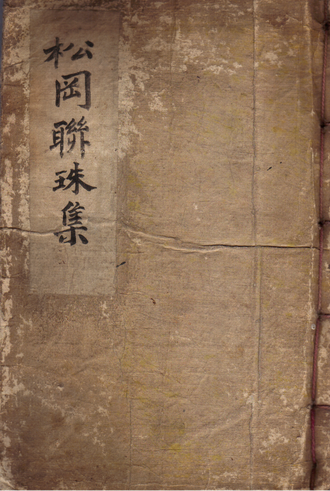 松岡聯珠集